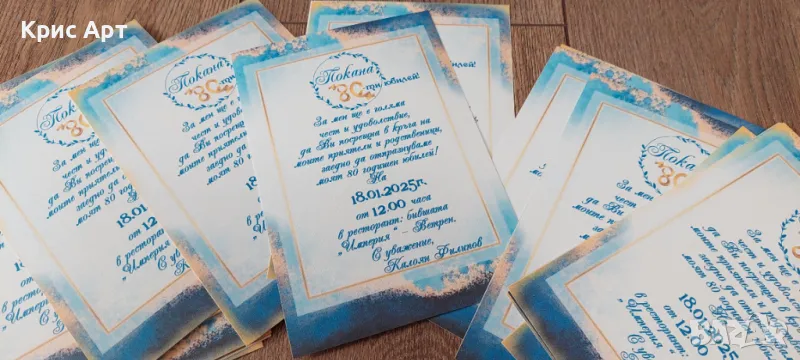 Крис Арт
Покана
80 ти юбилей!
За мен ще е голяма
чест и удоволствие,
да Ви посрещна в кръга на
моите приятели и родственици,
заедно да отпразнуваме
моят 80 годишен юбилей!
На
18.01.2025г.
от 12.00 часа
в ресторант: бившата
"Империя" - Ветрен.
С уважение,
Калоян Филипов